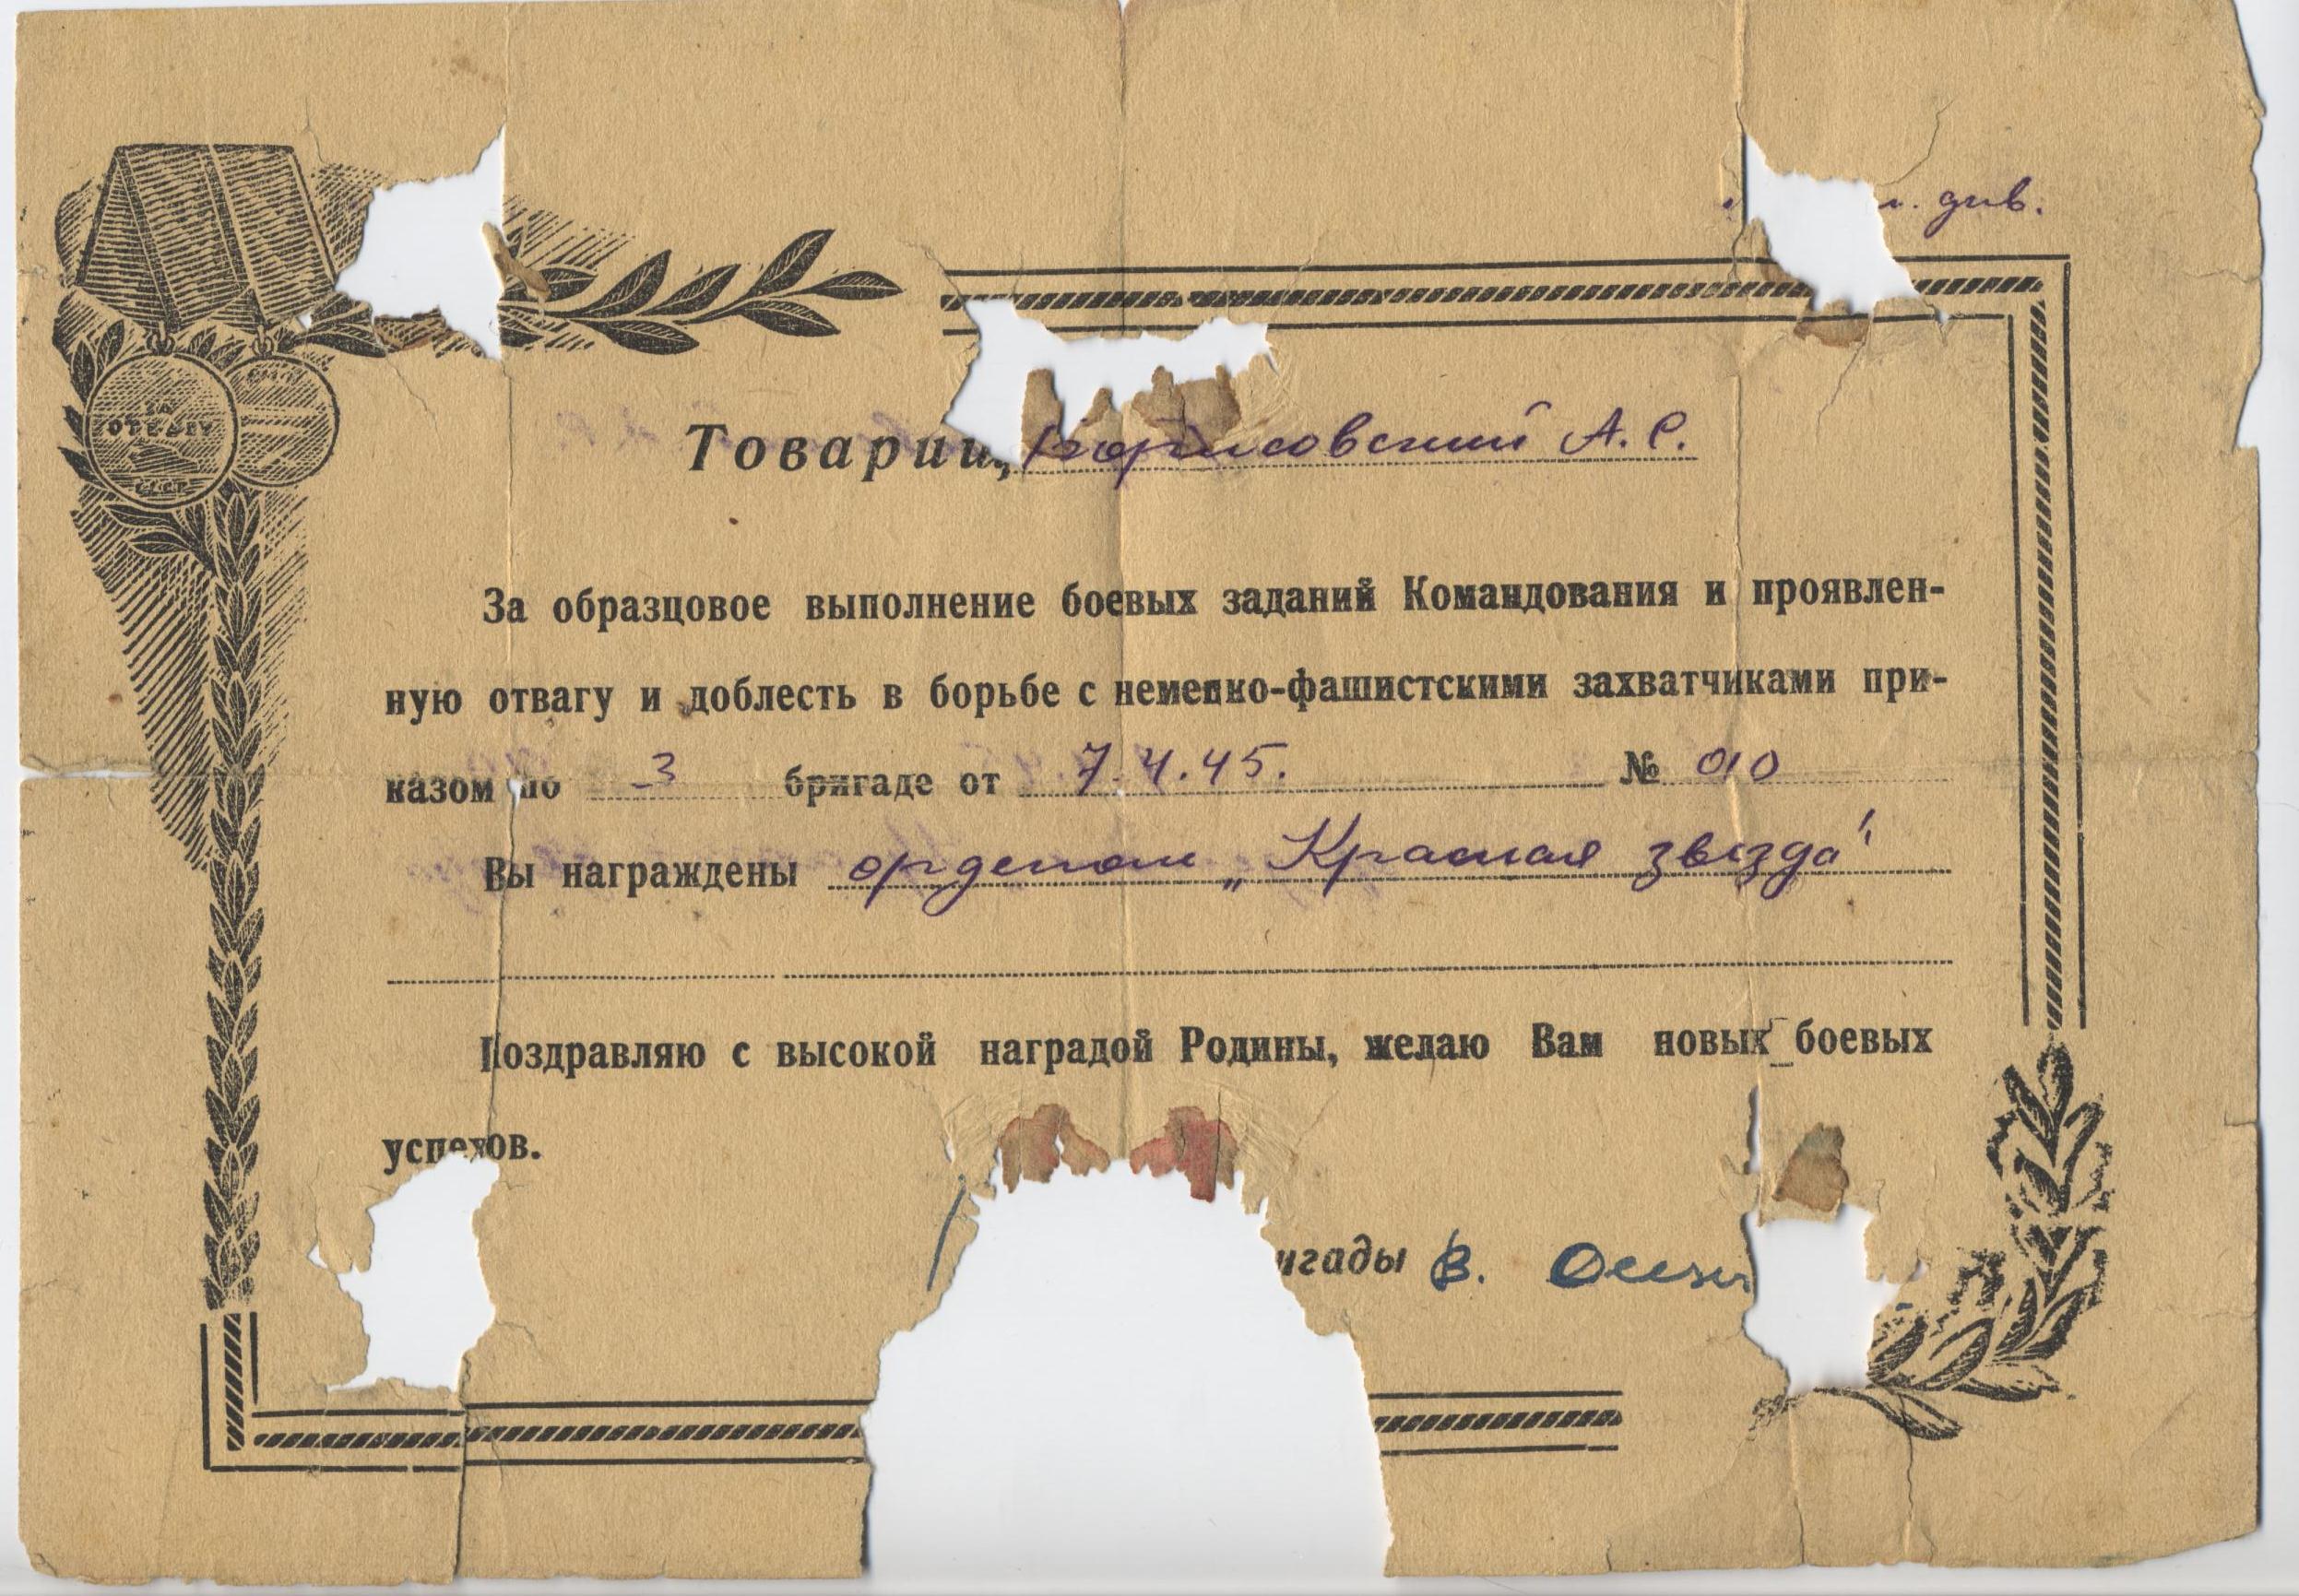 див.
ЗА
ОТВАГУ
СССР
Товарищ Борисовский А. С.
За образцовое выполнение боевых заданий Командования и проявлен-
ную отвагу и доблесть в борьбе с немецко-фашистскими захватчиками при-
казом по 3 бригаде от 7.4.45. № 010
Вы награждены орденом „Красная звезда"
Поздравляю с высокой наградой Родины, желаю Вам новых боевых
успехов.
игады В.